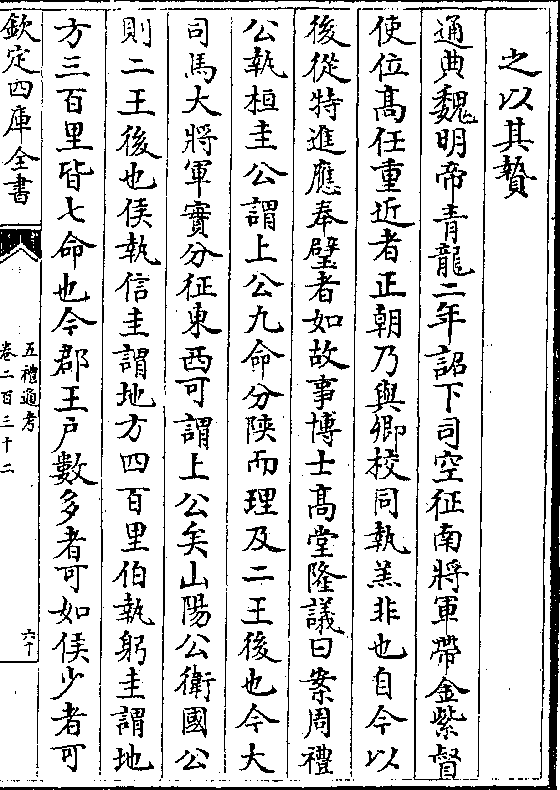 之以其贄
通典魏明帝青龍二年詔下司空征南將軍帶金紫督
使位髙任重近者正朝乃與卿校同執羔非也自今以
後從特進應奉璧者如故事博士髙堂隆議曰案周禮
公執桓圭公謂上公九命分陜而理及二王後也今大
司馬大將軍實分征東西可謂上公矣山陽公衛國公
則二王後也侯執信圭謂地方四百里伯執躬圭謂地
方三百里皆七命也今郡王戸數多者可如侯少者可
欽定四庫全書
五禮通考
卷二百三十二
六十